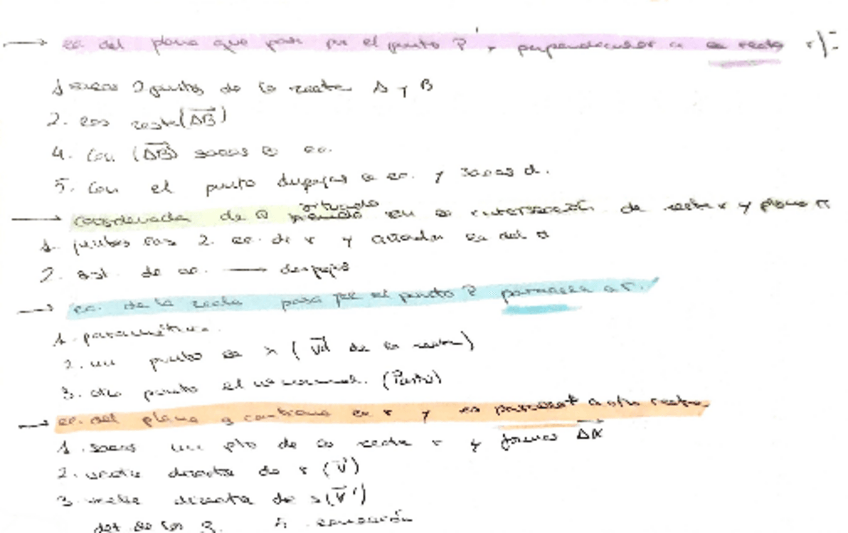 → ec. del plano que pasa por el punto P y perpendicular a la recta r
1. sacas 2 puntos de la recta A y B
2. los resta (AB)
4. Con (AB) sacas ec.
5. Con el punto despejas ec. y sacas d.
→ coordenada de Q situado en la intersección de recta r y plano π
1. juntas las 2. ec. de r y añades la del π
2. sist. de ec. → despejas
→ ec. de la recta pasa por el punto P paralela a r.
1. paramétrica.
2. un punto es λ (vd de la recta)
3. otro punto el normal. (Punto)
→ ec. del plano q contiene la r y es paralelo a otra recta
1. sacas un pto de la recta r y formas AX
2. vector director de r (v)
3. vector director de s (v')
det de los 3. ecuación